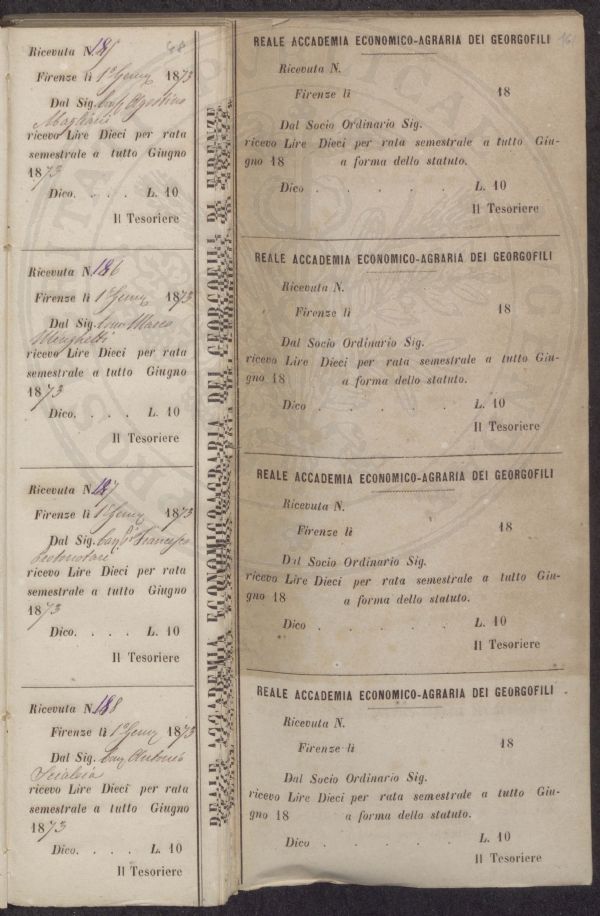 Ricevuta N. 185 68
Firenze li 1° Genn 1873
Dal Sig. Agostino
Magliani
ricevo Lire Dieci per rata
semestrale a tutto Giugno
1873
Dico. . . . L. 10
Il Tesoriere
Ricevuta N. 186
Firenze li 1° Genn 1873
Dal Sig. Marco
Minghetti
ricevo Lire Dieci per rata
semestrale a tutto Giugno
1873
Dico. . . . L. 10
Il Tesoriere
Ricevuta N. 187
Firenze lì 1° Genn 1873
Dal Sig. Francesco
Protonotari
ricevo Lire Dieci per rata
semestrale a tutto Giugno
1873
Dico. . . . L. 10
Il Tesoriere
Ricevuta N. 188
Firenze lì 1° Genn 1873
Dal Sig. Antonio
Scialoia
ricevo Lire Dieci per rata
semestrale a tutto Giugno
1873
Dico. . . . L. 10
Il Tesoriere
REALE ACCADEMIA ECONOMICO-AGRARIA DEI GEORGOFILI DI FIRENZE
REALE ACCADEMIA ECONOMICO-AGRARIA DEI GEORGOFILI
Ricevuta N.
Firenze lì 18
Dal Socio Ordinario Sig.
ricevo Lire Dieci per rata semestrale a tutto Giu-
gno 18 a forma dello statuto.
Dico . . . . . L. 10
Il Tesoriere
REALE ACCADEMIA ECONOMICO-AGRARIA DEI GEORGOFILI
Ricevuta N.
Firenze lì 18
Dal Socio Ordinario Sig.
ricevo Lire Dieci per rata semestrale a tutto Giu-
gno 18 a forma dello statuto.
Dico . . . . . L. 10
Il Tesoriere
REALE ACCADEMIA ECONOMICO-AGRARIA DEI GEORGOFILI
Ricevuta N.
Firenze lì 18
Dal Socio Ordinario Sig.
ricevo Lire Dieci per rata semestrale a tutto Giu-
gno 18 a forma dello statuto.
Dico . . . . . L. 10
Il Tesoriere
REALE ACCADEMIA ECONOMICO-AGRARIA DEI GEORGOFILI
Ricevuta N.
Firenze lì 18
Dal Socio Ordinario Sig.
ricevo Lire Dieci per rata semestrale a tutto Giu-
gno 18 a forma dello statuto.
Dico . . . . . L. 10
Il Tesoriere